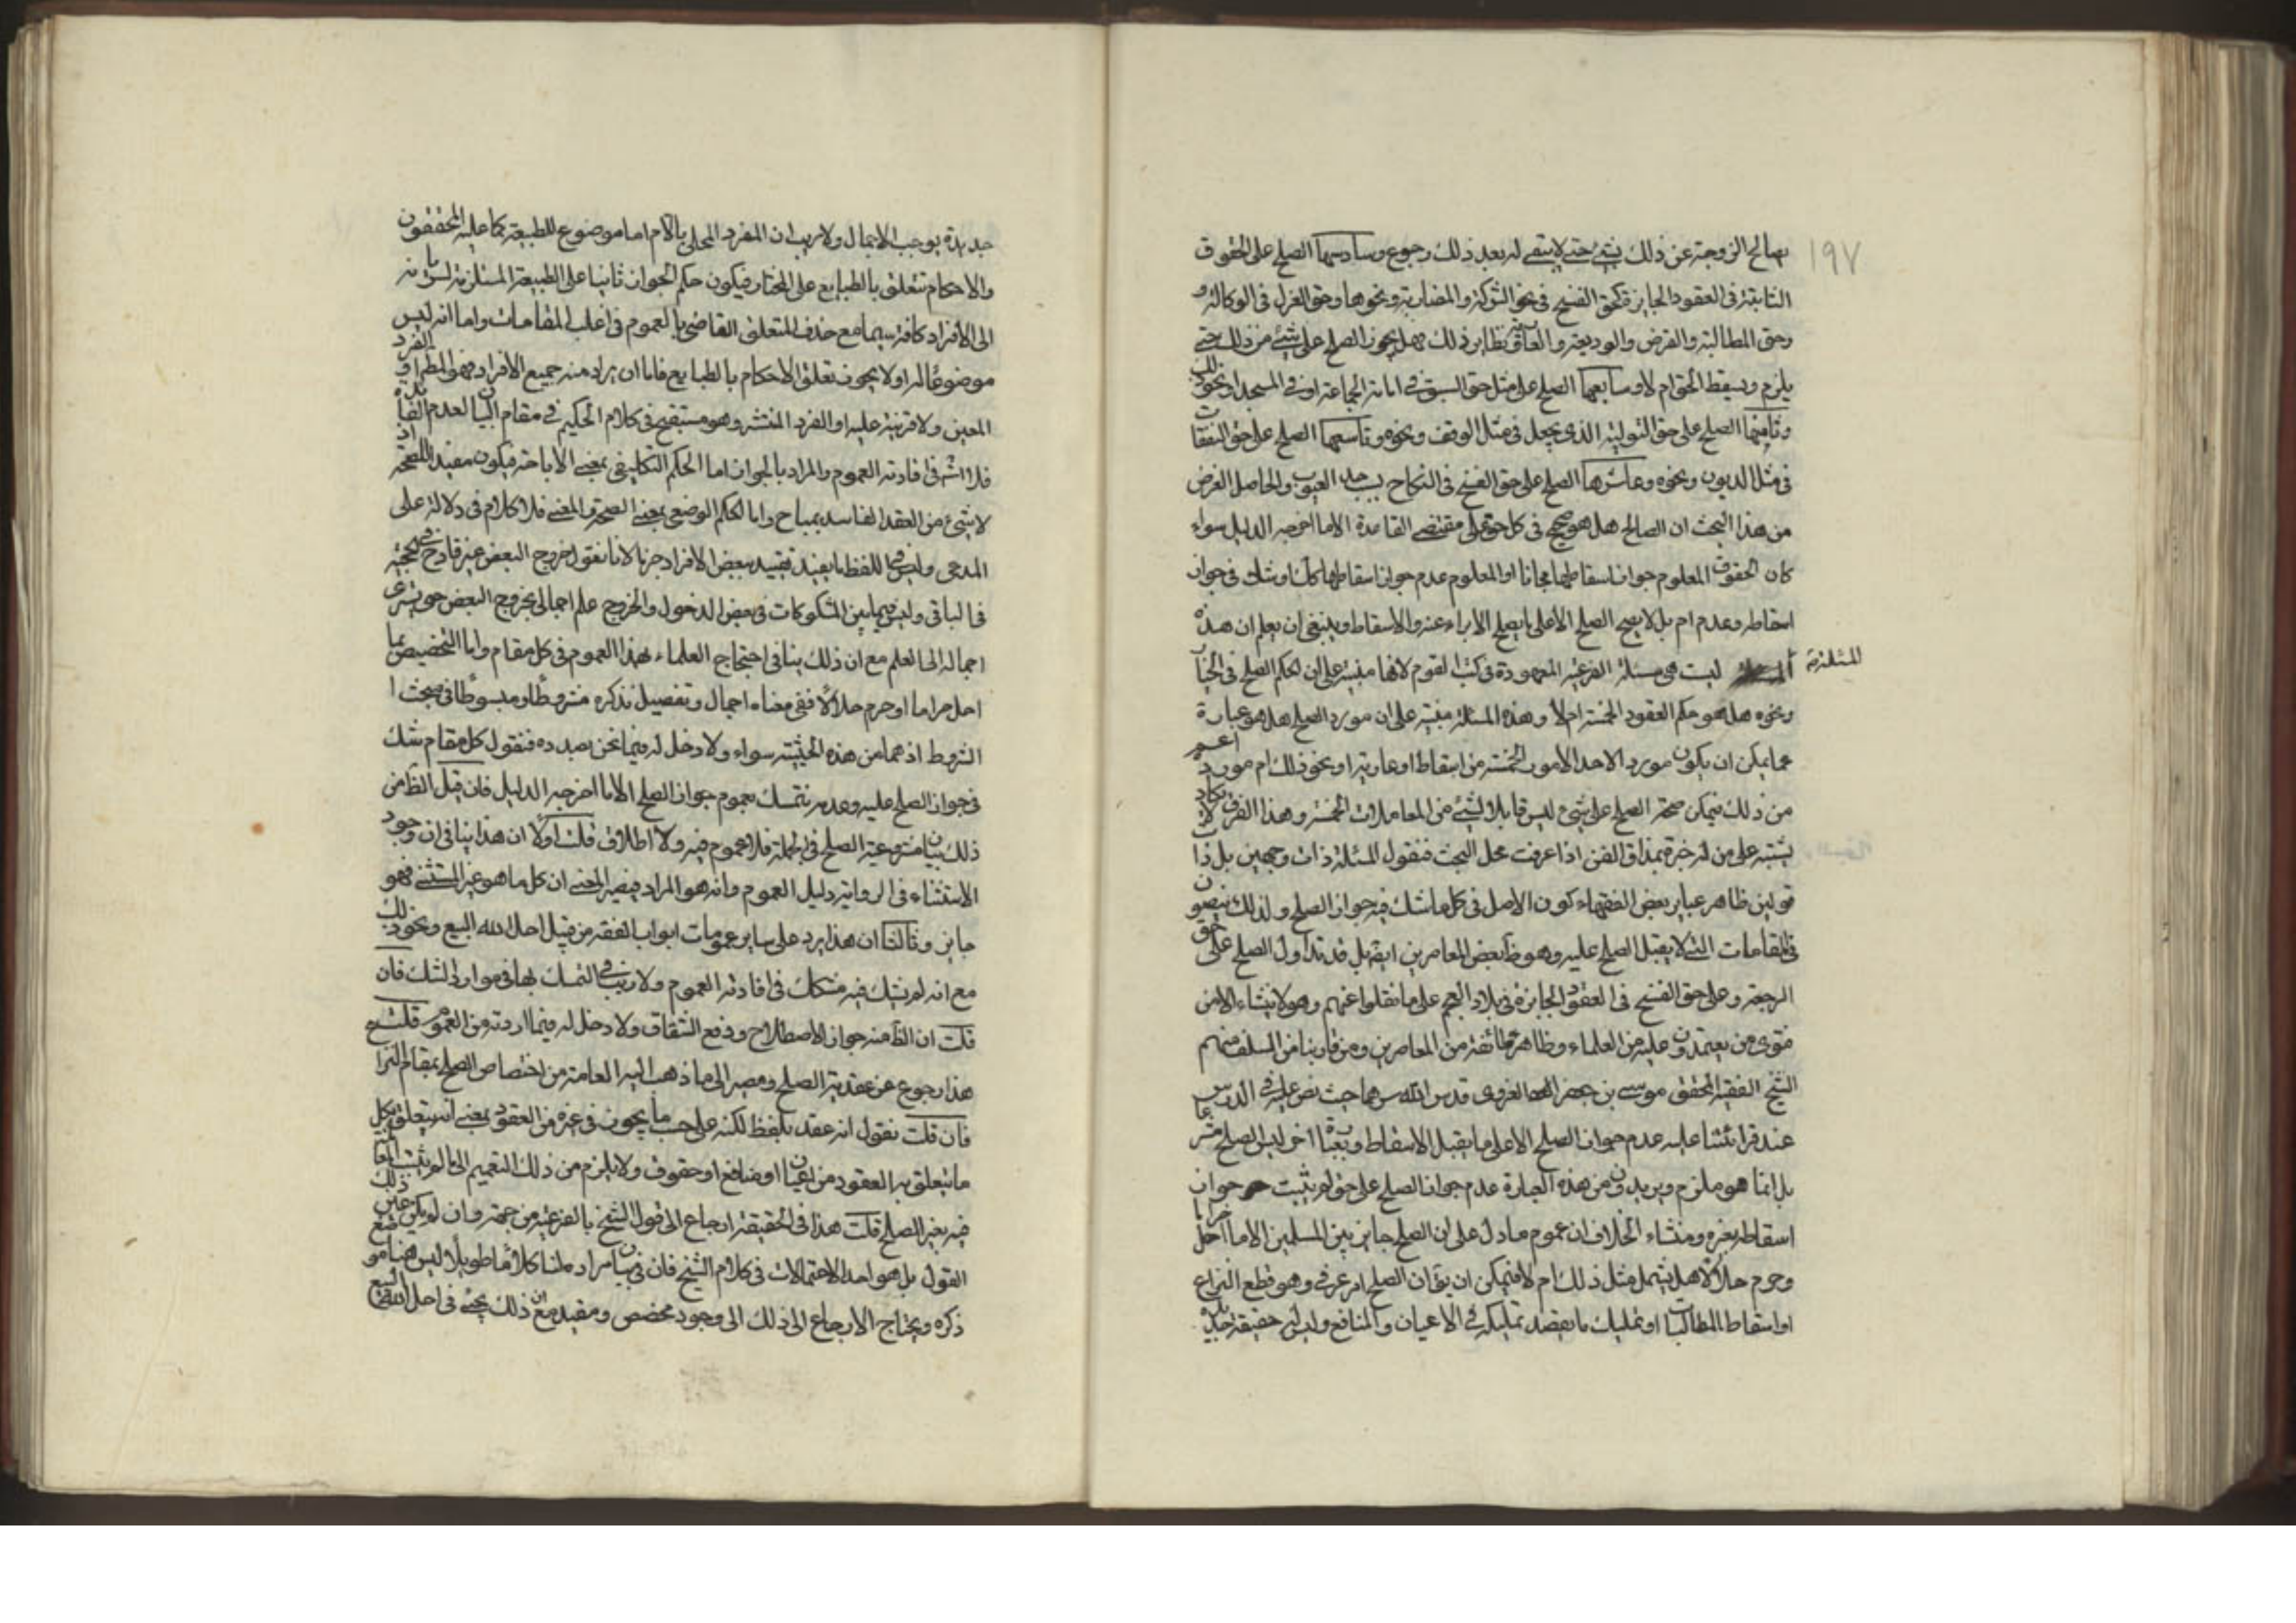 ١٩٧
يصالح الزوجة عن ذلك بشيء حتى لا يبقى له بعد ذلك رجوع وسادسها الصلح على الحقوق
الثابتة في العقود الجايزة كحق الفسخ في نحو الشركة والمضاربة ونحوها وحق العزل في الوكالة و
وحق المطالبة والقرض والوديعة والعارية ونظاير ذلك فهل يجوز الصلح على شيء من ذلك حتى
يلزم ويسقط الحق ام لا وسابعها الصلح على مثل حق السبق في امامة الجماعة او في المسجد او نحو ذلك
وثامنها الصلح على حق التولية الذي يجعل في مثل الوقف ونحوه وتاسعها الصلح على حق النفقات
في مثل الديون ونحوه وعاشرها الصلح على حق الفسخ في النكاح باحد العيوب والحاصل الغرض
من هذا البحث ان الصالح هل هو صحيح في كل حق على مقتضى القاعدة الا ما اخرجه الدليل سواء
كان الحقوق المعلوم جواز اسقاطها مجانا او المعلوم عدم جواز اسقاطها كك او شك في جواز
اسقاطه وعدمه ام بل لا يصح الصلح الا على ما يصلح الابراء عنه والاسقاط وينبغي ان يعلم ان هذه
المسئلة ليست هي مسئلة الفرعية المعهودة في كتب القوم لانها مبنية على ان حكم الصلح في الخيار
ونحوه هل هو حكم العقود الخمسة ام لا وهذه المسئلة مبنية على ان مورد الصلح هل هو عبارة
عما يمكن ان يكون مورد الاحد الامور الخمسة من اسقاط او عارية او نحو ذلك ام مورده اعم
من ذلك فيمكن صحة الصلح على شيء ليس قابلا لشيء من المعاملات الخمسة وهذا الفرق لا يكاد
يشتبه على من له خبرة بمذاق الفن اذا عرفت محل البحث فنقول المسئلة ذات وجهين بل ذات
قولين ظاهر عباير بعض الفقهاء كون الاصل في كل ما شك فيه جواز الصلح ولذلك ينصون
في المقامات التي لا يقبل الصلح عليه وهو ظ بعض المعاصرين ايضا بل قد تداول الصلح على حق
الرجعة وعلى حق الفسخ في العقود الجايزة في بلاد العجم على ما نقلوا عنهم وهو لا ينشاء الا من
فتوى من يعتمدون عليه من العلماء وظاهر طائفة من المعاصرين ومن قاربنا من السلف منهم
الشيخ الفقيه المحقق موسى بن جعفر الغروي قدس الله سرهما حيث نص عليه في الدرس
عند قرائتنا عليه عدم جواز الصلح الا على ما يقبل الاسقاط وبعبارة اخرى ليس الصلح مشرعا
بل انما هو ملزم ويريدون من هذه العبارة عدم جواز الصلح على حق لم يثبت جواز
اسقاطه بغيره ومنشاء الخلاف ان عموم ما دل على ان الصلح جايز بين المسلمين الا ما احل حراما
وحرم حلالا هل يشمل مثل ذلك ام لا فيمكن ان يق ان الصلح امر عرفي وهو قطع النزاع
او اسقاط المطالبات او تمليك ما يقصد تمليكه في الاعيان والمنافع وليس له حقيقة جديدة
جديدة يوجب الاجمال ولا ريب ان المفرد المحلى باللام اما موضوع للطبيعة كما عليه المحققون
والاحكام تتعلق بالطبايع على المختار فيكون حكم الجواز ثابتا على الطبيعة المستلزمة لسريانه
الى الافراد كافة سيما مع حذف المتعلق القاضي بالعموم في اغلب المقامات واما انه ليس
موضوعا له او لا يجوز تعلق الاحكام بالطبايع فاما ان يراد منه جميع الافراد فهو المط او الفرد
المعين ولا قرينة عليه او الفرد المنتشر وهو مستقبح في كلام الحكيم في مقام البيان لعدم الفائدة
فلا اشكال في افادته العموم والمراد بالجواز اما الحكم التكليفي بمعنى الاباحة فيكون مفيدا للصحة اذ
لا شيء من العقد الفاسد بمباح واما الحكم الوضعي بمعنى الصحة والمعنى فلا كلام في دلالته على
المدعى وليس في اللفظ ما يفيد تقييد ببعض الافراد جزما لانا نقول خروج البعض غير قادح في حجيته
في الباقي وليس فيما بين المشكوكات في بعض الدخول والخروج علم اجمالي بخروج البعض حتى يسري
اجماله الى العلم مع ان ذلك ينافي احتجاج العلماء بهذا العموم في كل مقام واما التخصيص بما
احل حراما او حرم حلالا ففي معناه اجمال وتفصيل نذكره مشروطا ومبسوطا في مبحث ا
الشروط اذ هما من هذه الحيثية سواء ولا دخل له فيما نحن بصدده فنقول كل مقام شك
في جواز الصلح عليه وعدمه نتمسك بعموم جواز الصلح الا ما اخرجه الدليل فان قيل الظ من
ذلك بيان مشروعية الصلح في الجملة فلا عموم فيه ولا اطلاق قلت اولا ان هذا ينافي ان وجود
الاستثناء في الرواية دليل العموم وانه هو المراد فيصير المعنى ان كل ما هو غير المستثنى فهو
جايز وثالثا ان هذا يرد على ساير عمومات ابواب الفقه من قبيل احل الله البيع ونحو ذلك
مع انه لم يشك فيه مشكك في افادته العموم ولا ريب في التمسك بها في موارد الشك فان
قلت ان الظ منه جواز الاصطلاح ودفع الشقاق ولا دخل له فيما اردته من العموم قلت
هذا رجوع عن عقدية الصلح ومصير الى ما ذهب اليه العامة من اختصاص الصلح بمقام النزاع
فان قلت نقول انه عقد بلفظ لكنه على حسب ما يجوز في غيره من العقود بمعنى انه يتعلق بكل
ما يتعلق به العقود من اعيان او منافع او حقوق ولا يلزم من ذلك التعميم الى ما لم يثبت
فيه بغير الصلح قلت هذا في الحقيقة ارجاع الى قول الشيخ بالفرعية من جهة وان لم يكن عين ذلك
القول بل هو احد الاحتمالات في كلام الشيخ فان في بيان مراده لنا كلاما طويلا ليس هنا موضع
ذكره ويحتاج الارجاع الى ذلك الى وجود مخصص ومقيد مع ان ذلك يجيء في احل الله البيع